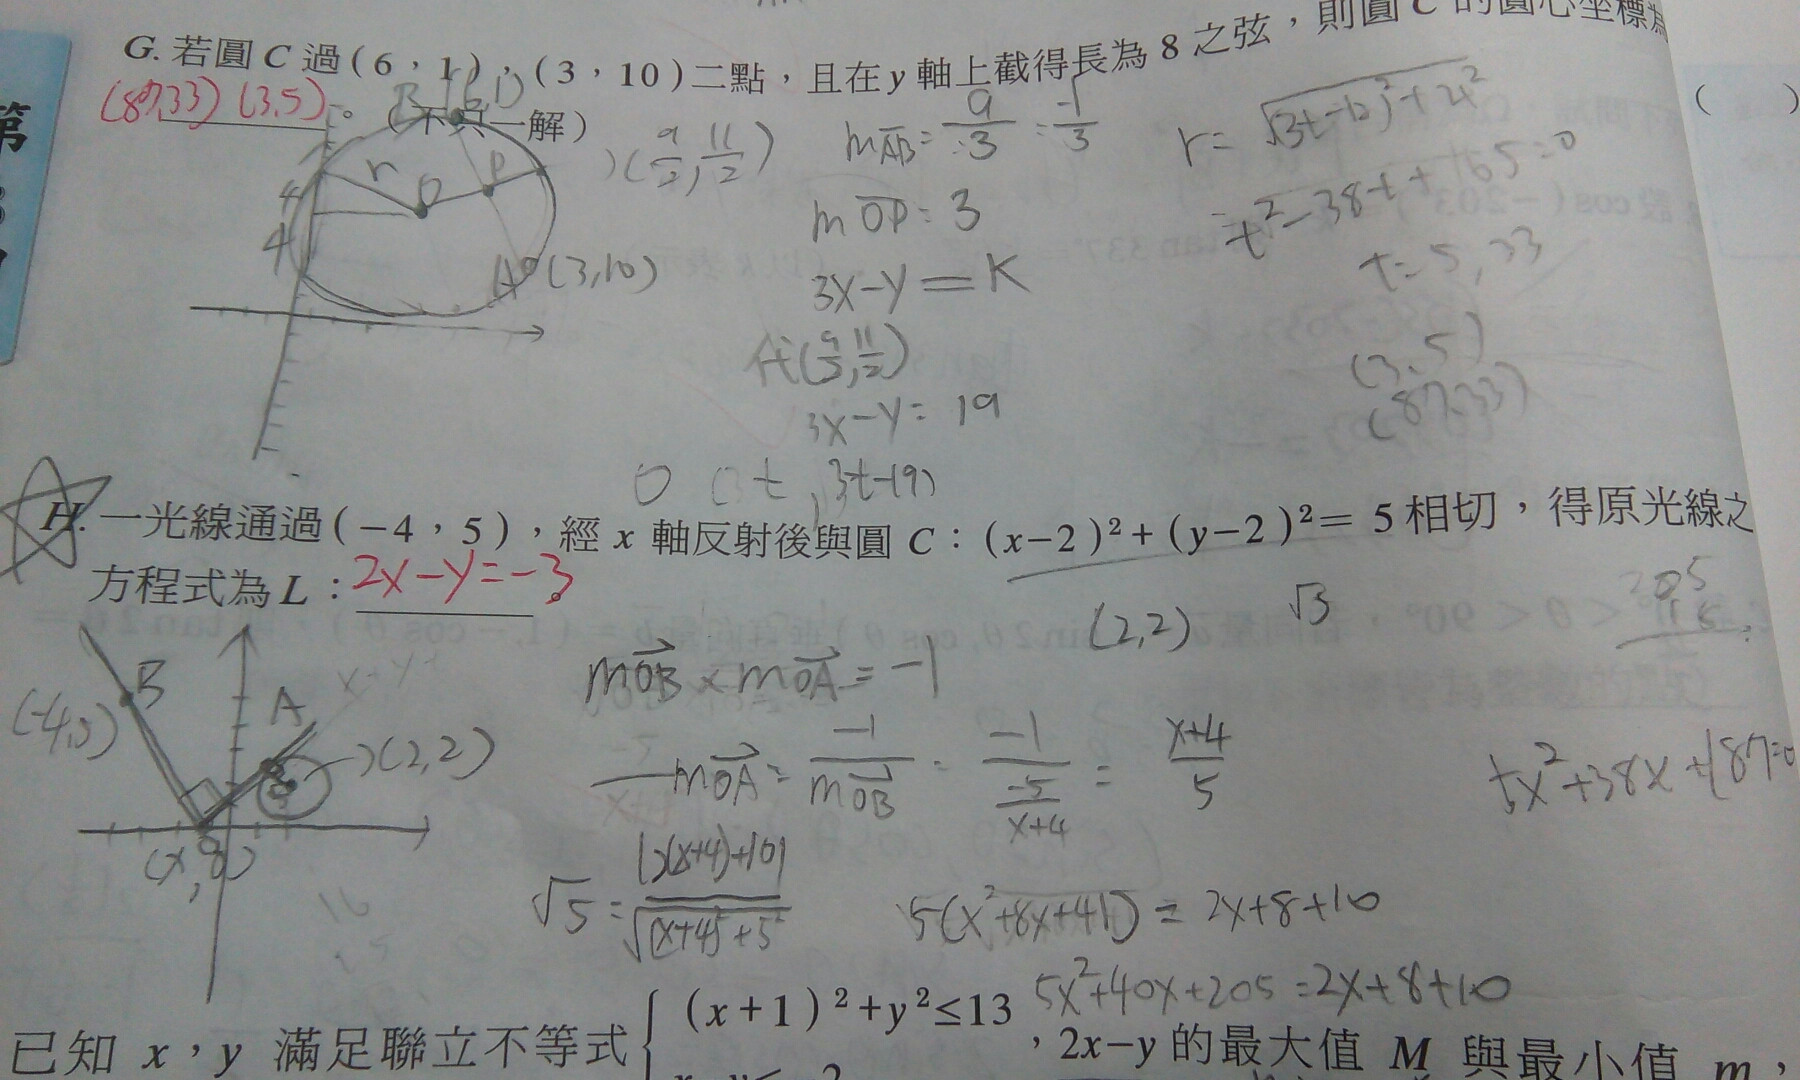 G. 若圓 C 過(6,1),(3,10)二點,且在 y 軸上截得長為 8 之弦,則圓 C 的圓心坐標為
(87,33) (3,5)。(不只一解)
B (6,1)
r O P
4
4
A(3,10)
(9/2, 11/2)
mAB = 9/-3 = -1/3
mOP = 3
3x-y = K
代(9/2, 11/2)
3x-y = 19
O (t, 3t-19)
t²-38t+165=0
t=5,33
(3,5)
(87,33)
( )
H. 一光線通過(-4,5),經 x 軸反射後與圓 C:(x-2)²+(y-2)²= 5 相切,得原光線之
方程式為 L:2x-y=-3。
(2,2) √3
B
(-4,5)
A
(2,2)
(x,0)
mOB × mOA = -1
mOA = -1/mOB = -1/(-5/(x+4)) = (x+4)/5
5(x²+8x+41) = 2x+8+10
5x²+40x+205 = 2x+8+10
5x²+38x+187=0
已知 x,y 滿足聯立不等式 { (x+1)²+y²≤13 ,2x-y 的最大值 M 與最小值 m,